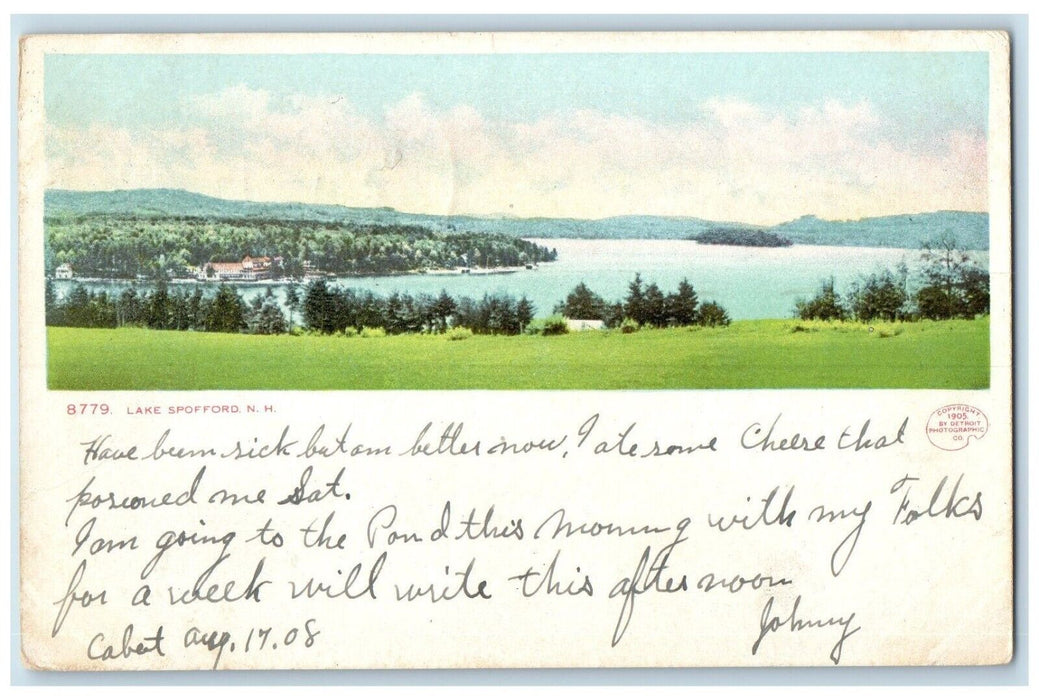 8779. LAKE SPOFFORD, N. H.
COPYRIGHT
1905.
BY DETROIT
PHOTOGRAPHIC
CO.
Have been sick but am better now, I ate some Cheese that
posioned me Sat.
I am going to the Pond this morning with my Folks
for a week will write this afternoon
Johnny
Cabot Aug. 17. 08